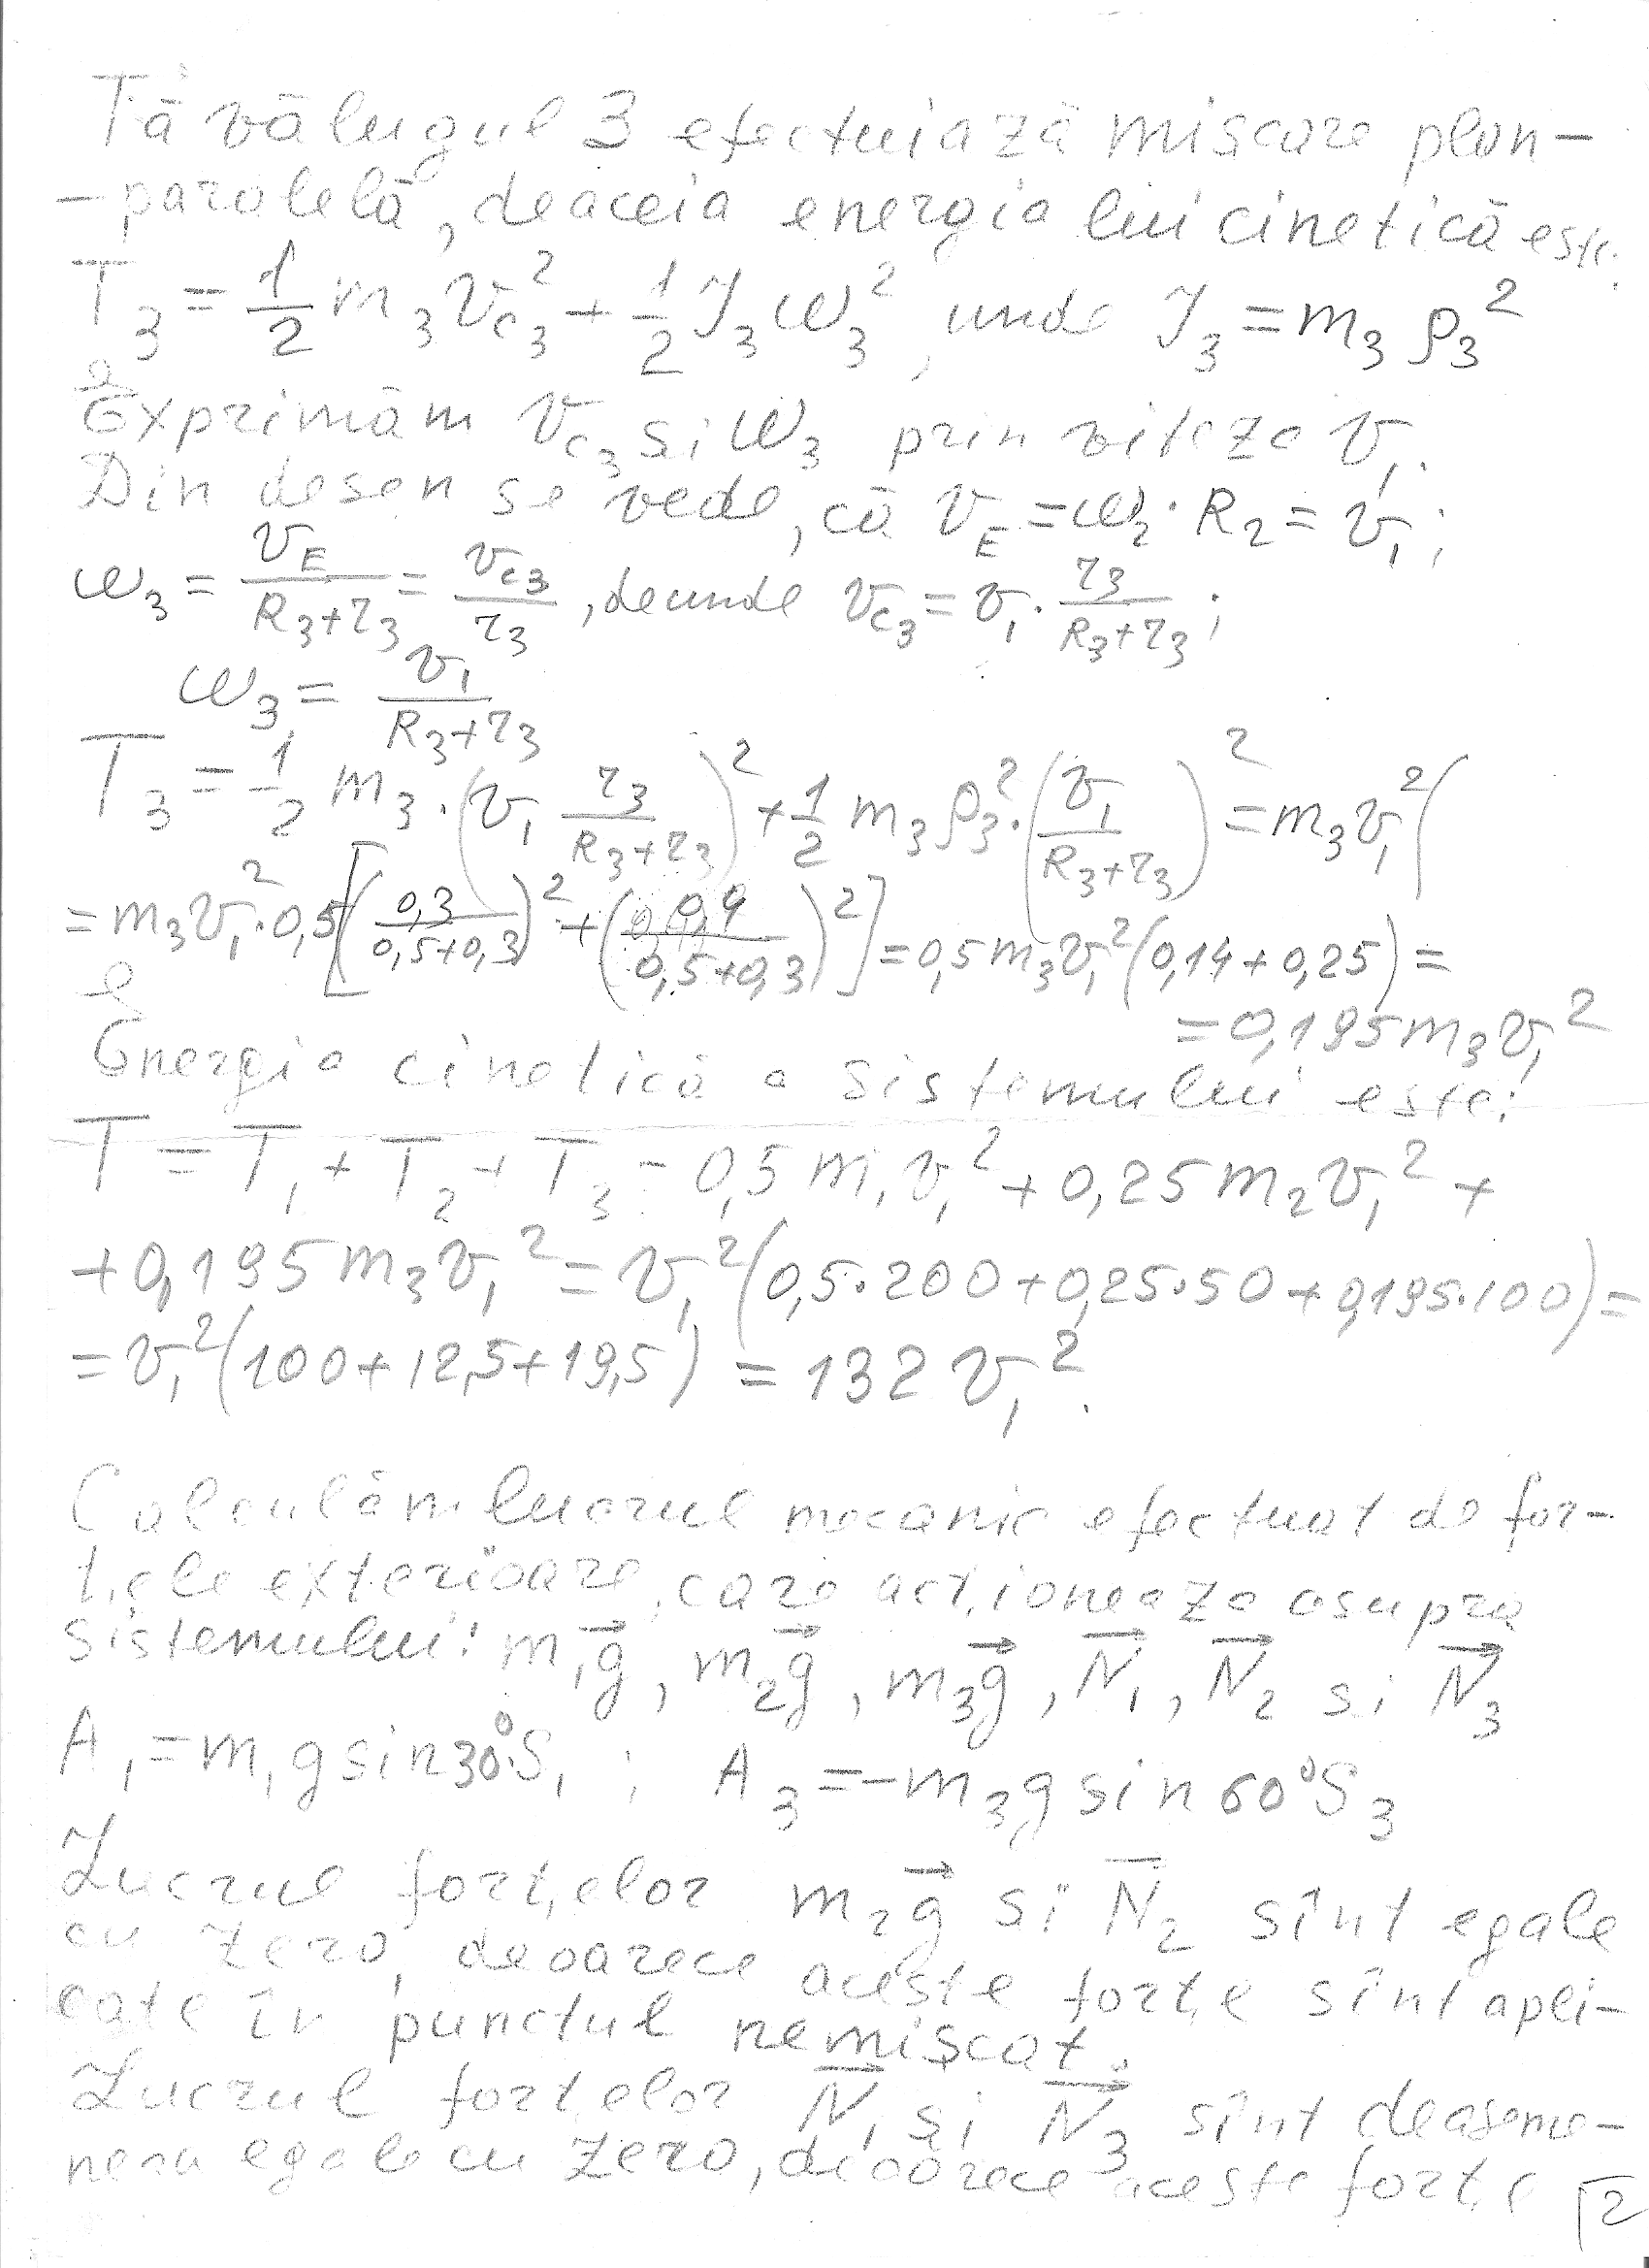 Tăvălugul 3 efectuiază mișcare plan-
-paralelă, deaceia energia lui cinetică este:
T₃ = 1/2 m₃ v_C₃² + 1/2 J₃ ω₃², unde J₃ = m₃ ρ₃²
Exprimăm v_C₃ și ω₃ prin viteza v₁.
Din desen se vede, că v_E = ω₂ · R₂ = v₁;
ω₃ = v_E/(R₃+r₃) = v_C₃/r₃, deunde v_C₃ = v₁ · r₃/(R₃+r₃);
ω₃ = v₁/(R₃+r₃)
T₃ = 1/2 m₃ · (v₁ r₃/(R₃+r₃))² + 1/2 m₃ ρ₃² · (v₁/(R₃+r₃))² = m₃v₁² (
= m₃v₁² · 0,5 [(0,3/(0,5+0,3))² + (0,4/(0,5+0,3))²] = 0,5 m₃v₁² (0,14 + 0,25) =
= 0,195 m₃v₁²
Energia cinetică a sistemului este:
T = T₁ + T₂ + T₃ = 0,5 m₁v₁² + 0,25 m₂v₁² +
+ 0,195 m₃v₁² = v₁² (0,5·200 + 0,25·50 + 0,195·100) =
= v₁² (100 + 12,5 + 19,5) = 132 v₁².
Calculăm lucrul mecanic efectuat de for-
țele exterioare, care acționeaza asupra
sistemului: m₁g⃗, m₂g⃗, m₃g⃗, N⃗₁, N⃗₂ si N⃗₃
A₁ = m₁ g sin30°·S₁ ; A₃ = -m₃ g sin 60° S₃
Lucrul forțelor m₂g⃗ si N⃗₂ sînt egale
cu zero, deoarece aceste forțe sînt apli-
cate în punctul nemișcat.
Lucrul forțelor N⃗₁ și N⃗₃ sînt deaseme-
nea egale cu zero, deoarece aceste forțe
2